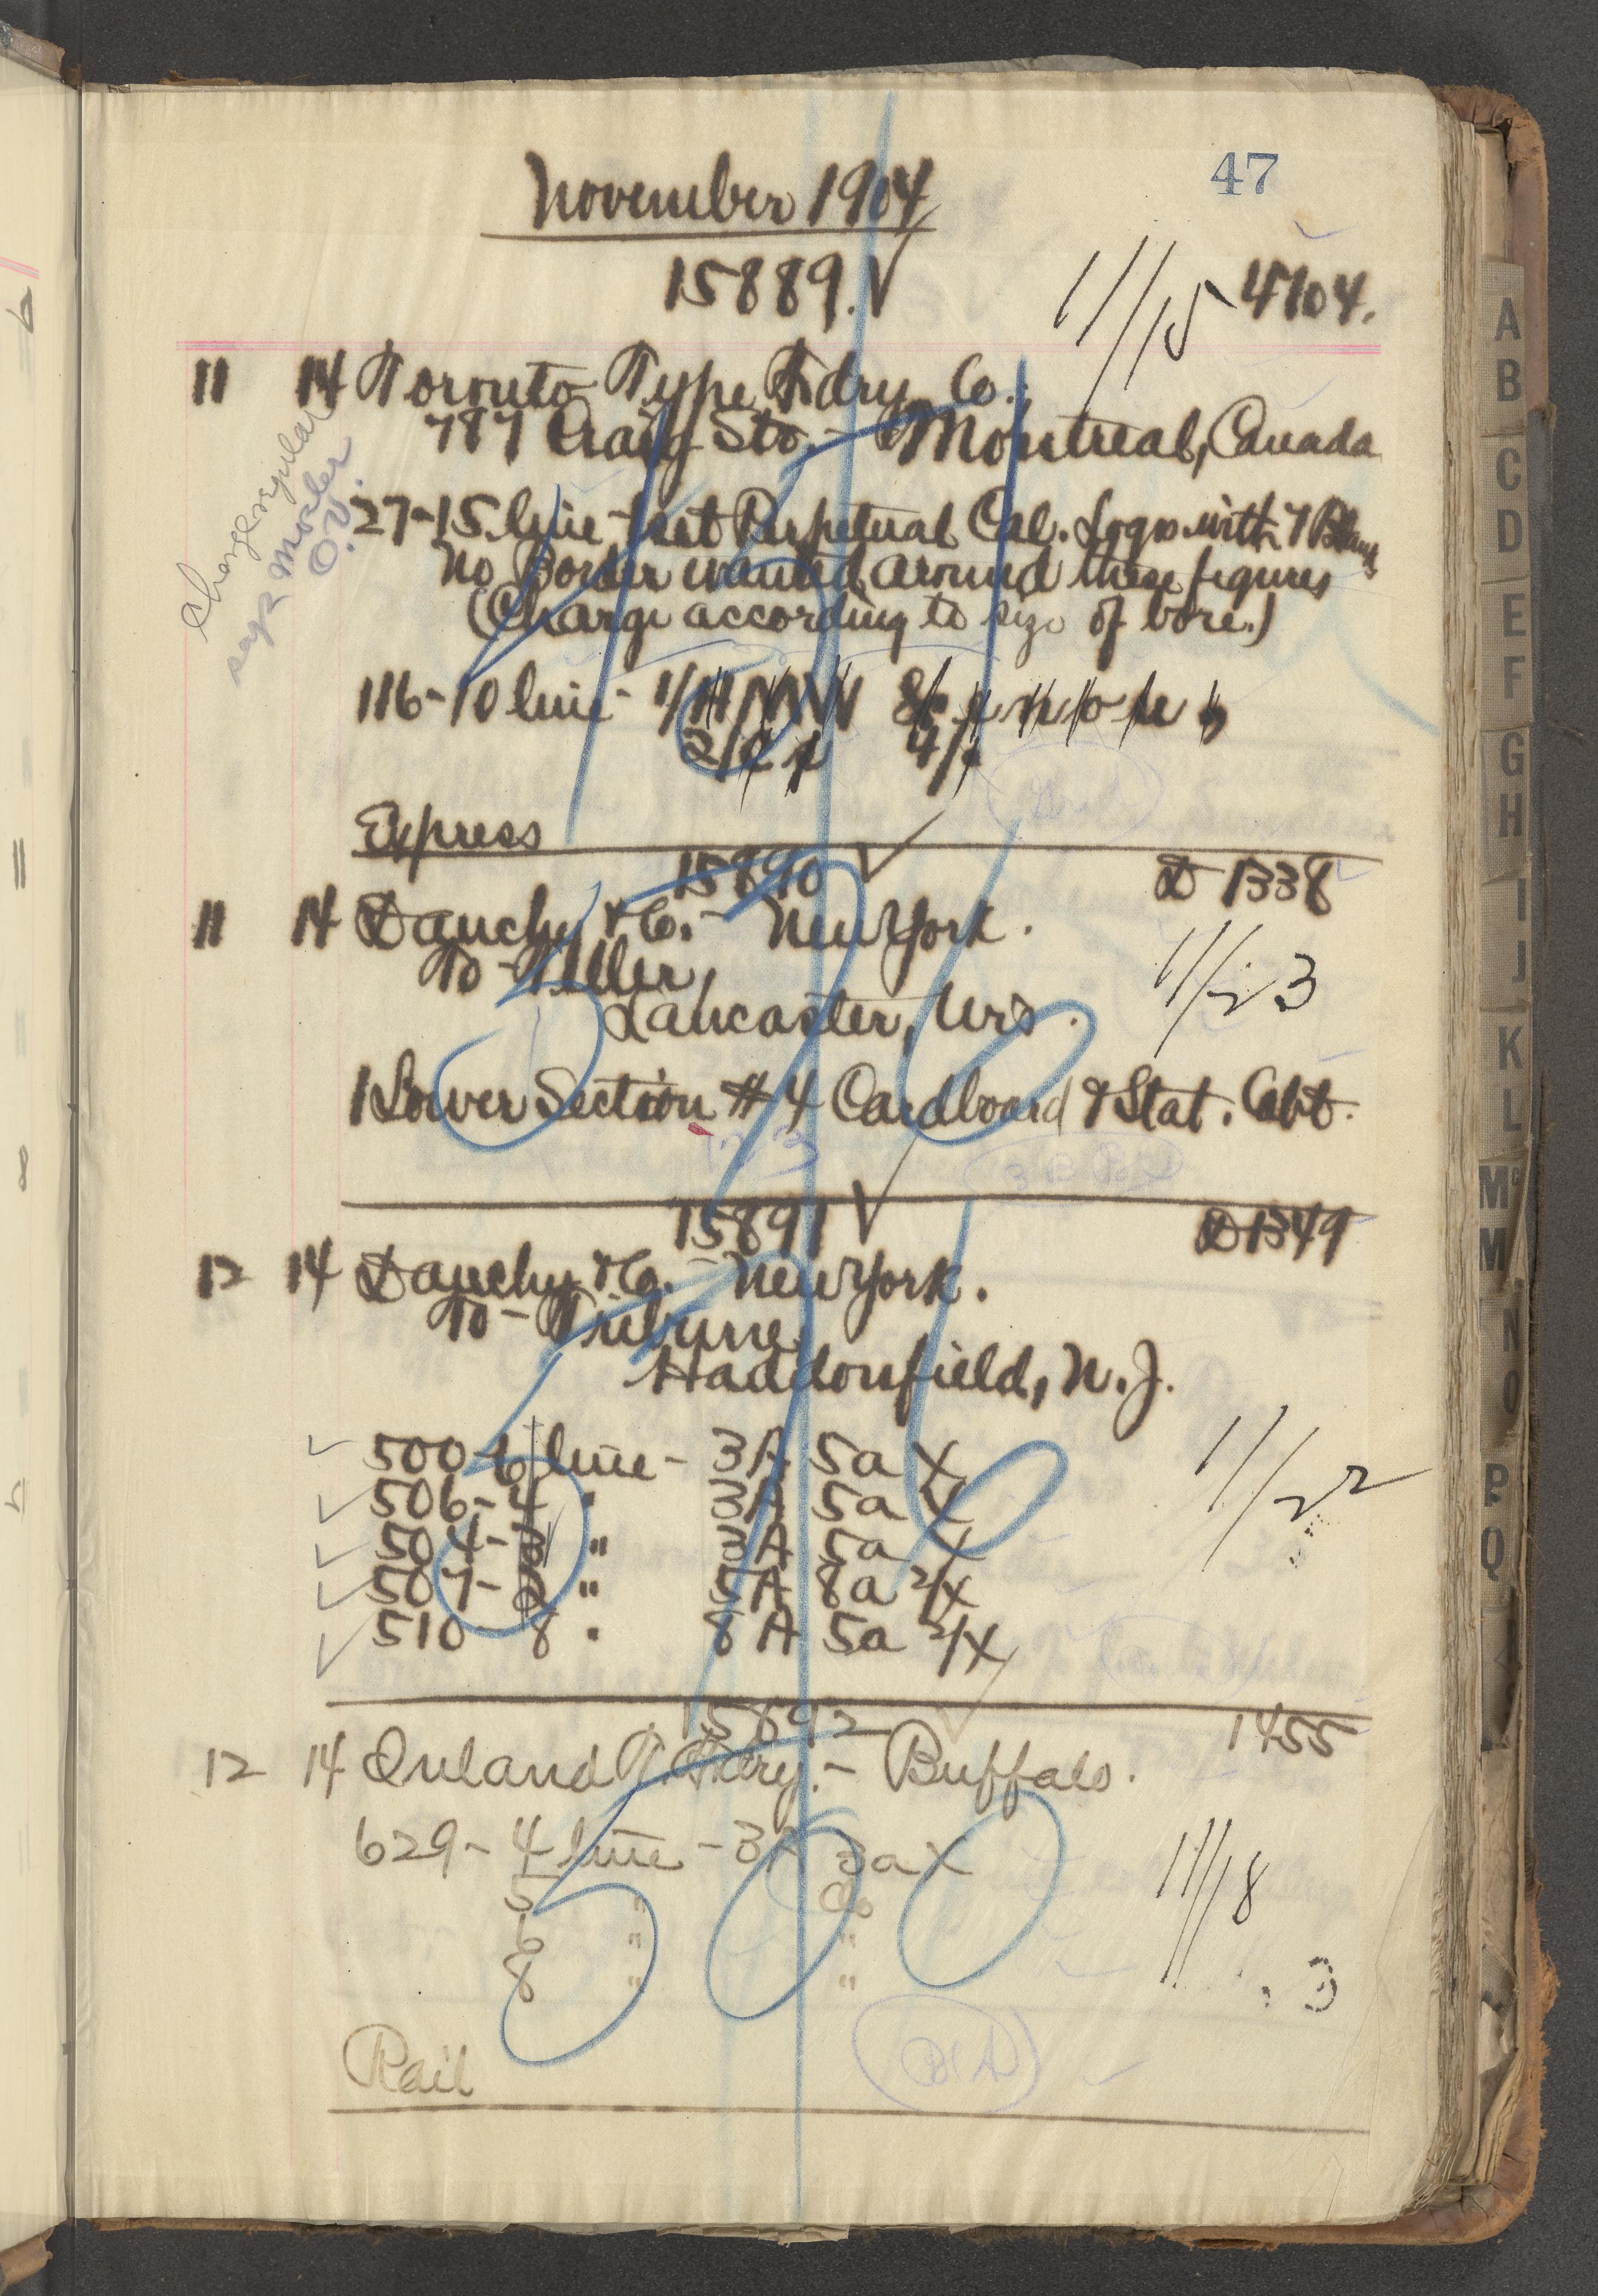 47
November 1904
15889. 4704.
11/15
11 14 Toronto Type Fdry. Co.
787 Craig St. - Montreal, Canada
Charge regular
says Mosler
O.V.
27-15 line Perpetual Cal. Logos with 7 Blanks
No Border wanted around these figures
(Charge according to size of bore.)
116-10 line-
Express
15890 D 1338
11 14 Dauchy & Co. - New York.
To - Teller,
11/23
Lancaster, Wis.
1 Lower Section #4 Cardboard & Stat. Cabt.
15891 D 1349
12 14 Dauchy & Co. - New York.
To - Tribune,
Haddonfield, N.J.
500-6 line - 3A 5a X
506-4 " 3A 5a X
11/22
504- " 3A 5a X
507- " 5A 8a 2/X
510 8 " 8A 5a 2/X
15892 1455
12 14 Inland T. Fdry. - Buffalo.
629-4 line - 3A 3a X
5 " Do
11/18
6 " "
8 " "
3
Rail
A
B
C
D
E
F
G
H
I
J
K
L
Mc
M
N
O
P
Q